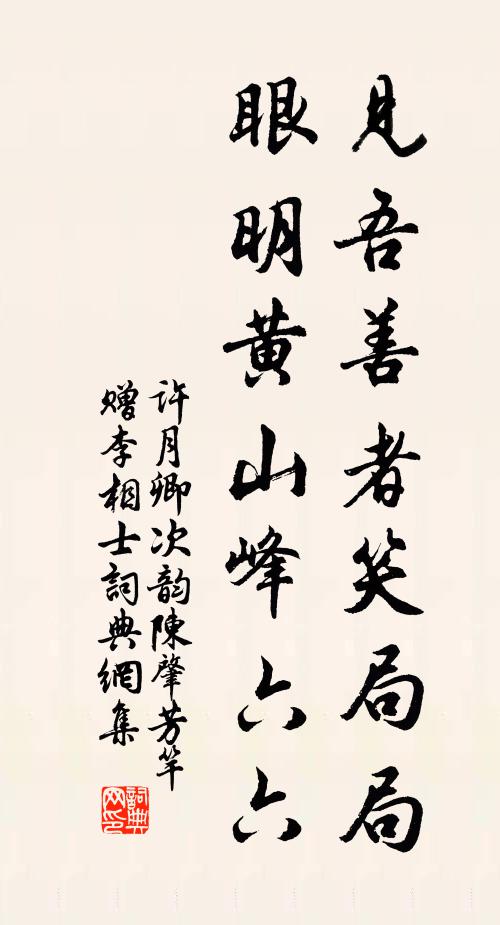 見吾善者笑局局
眼明黃山峰六六
許月卿次韵陳肇芳竿
贈李相士詞典網集
詞典网印